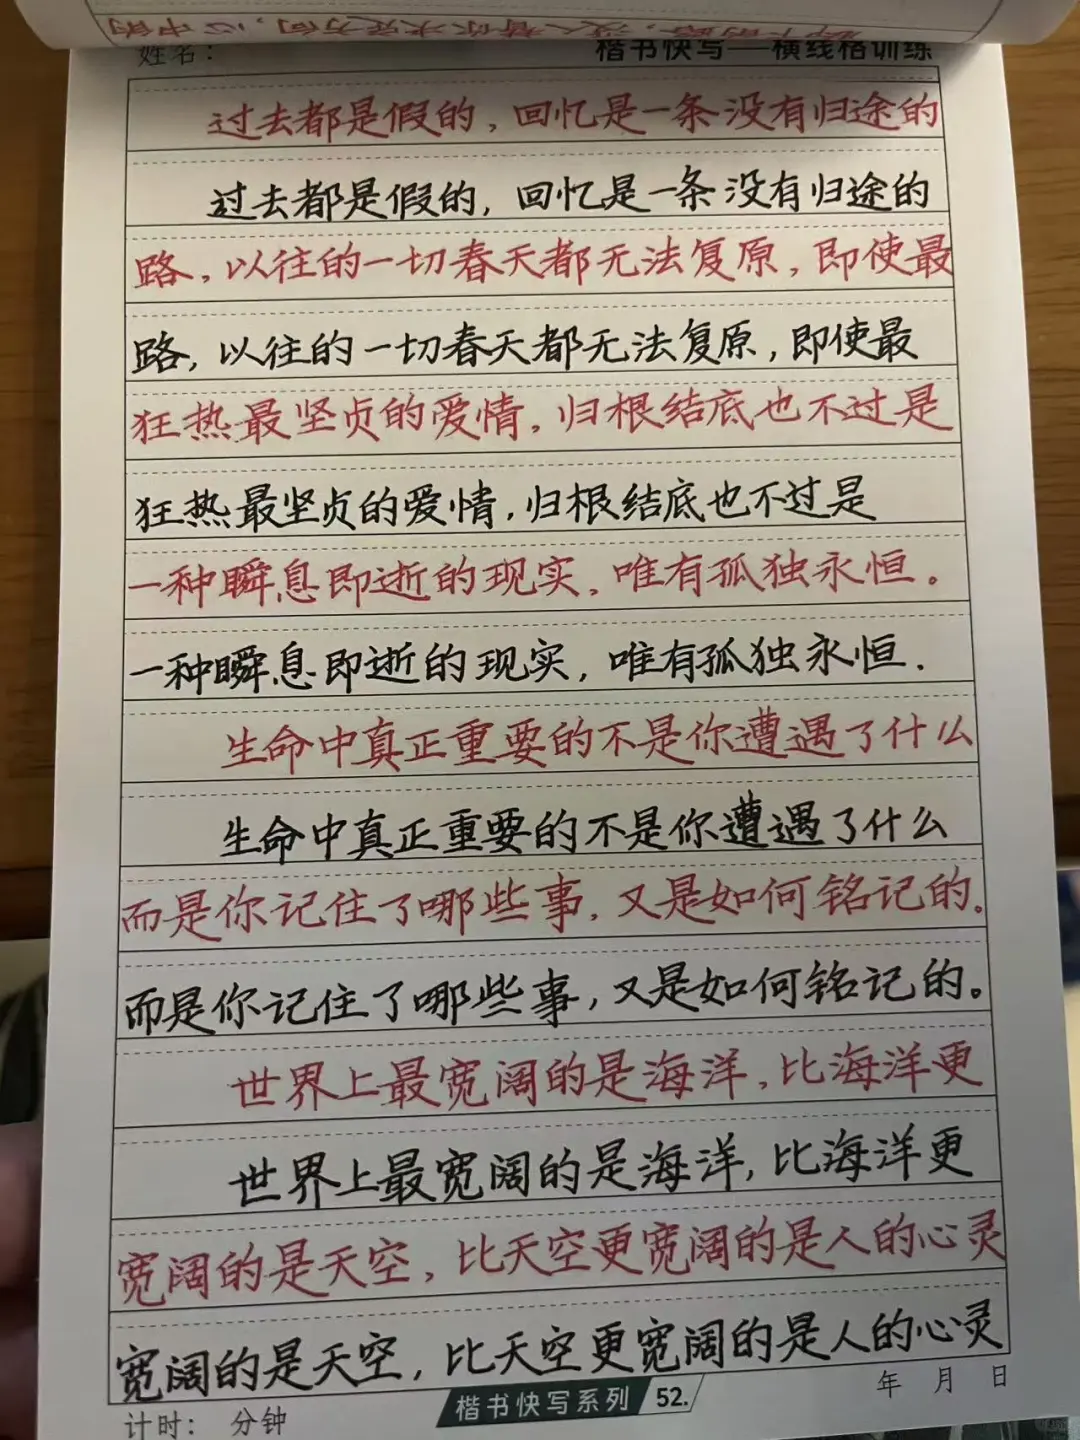 姓名： 楷书快写——横线格训练
过去都是假的，回忆是一条没有归途的
过去都是假的，回忆是一条没有归途的
路，以往的一切春天都无法复原，即使最
路，以往的一切春天都无法复原，即使最
狂热最坚贞的爱情，归根结底也不过是
狂热最坚贞的爱情，归根结底也不过是
一种瞬息即逝的现实，唯有孤独永恒。
一种瞬息即逝的现实，唯有孤独永恒.
生命中真正重要的不是你遭遇了什么
生命中真正重要的不是你遭遇了什么
而是你记住了哪些事，又是如何铭记的。
而是你记住了哪些事，又是如何铭记的。
世界上最宽阔的是海洋，比海洋更
世界上最宽阔的是海洋，比海洋更
宽阔的是天空，比天空更宽阔的是人的心灵
宽阔的是天空，比天空更宽阔的是人的心灵
计时： 分钟 楷书快写系列 52. 年 月 日